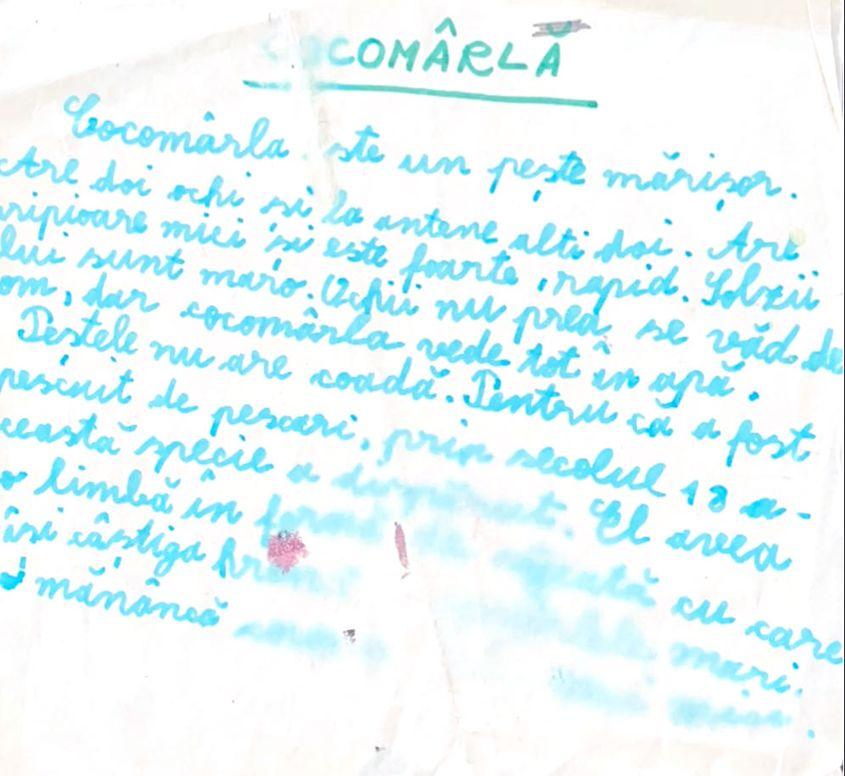 COCOMÂRLĂ
Cocomârla este un pește mărișor.
Are doi ochi si la antene alti doi. Are
aripioare mici si este foarte rapid. Solzii
lui sunt maro. Ochii nu prea se văd de
om, dar cocomârla vede tot în apă.
Pestele nu are coadă. Pentru că a fost
pescuit de pescari, prin secolul 18 a-
ceastă specie a dispărut. El avea
o limbă în formă de cu care
îsi câștiga hrana mari.
mănâncă